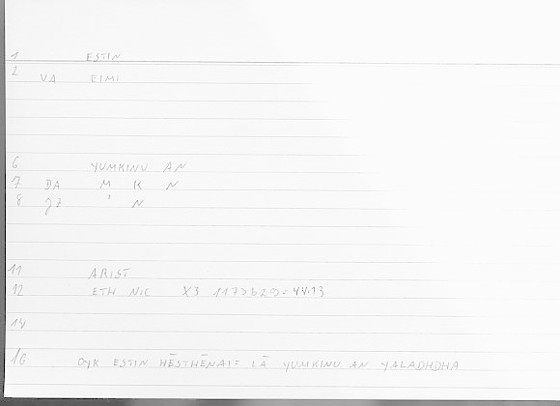 1 ESTIN
2 VA EIMI
6 YUMKINU AN
7 DA M K N
8 gz ' N
11 ARIST
12 ETH NIC X3 1173b29=44.13
14
16 OYK ESTIN HĒSTHĒNAI= LĀ YUMKINU AN YALADHDHA